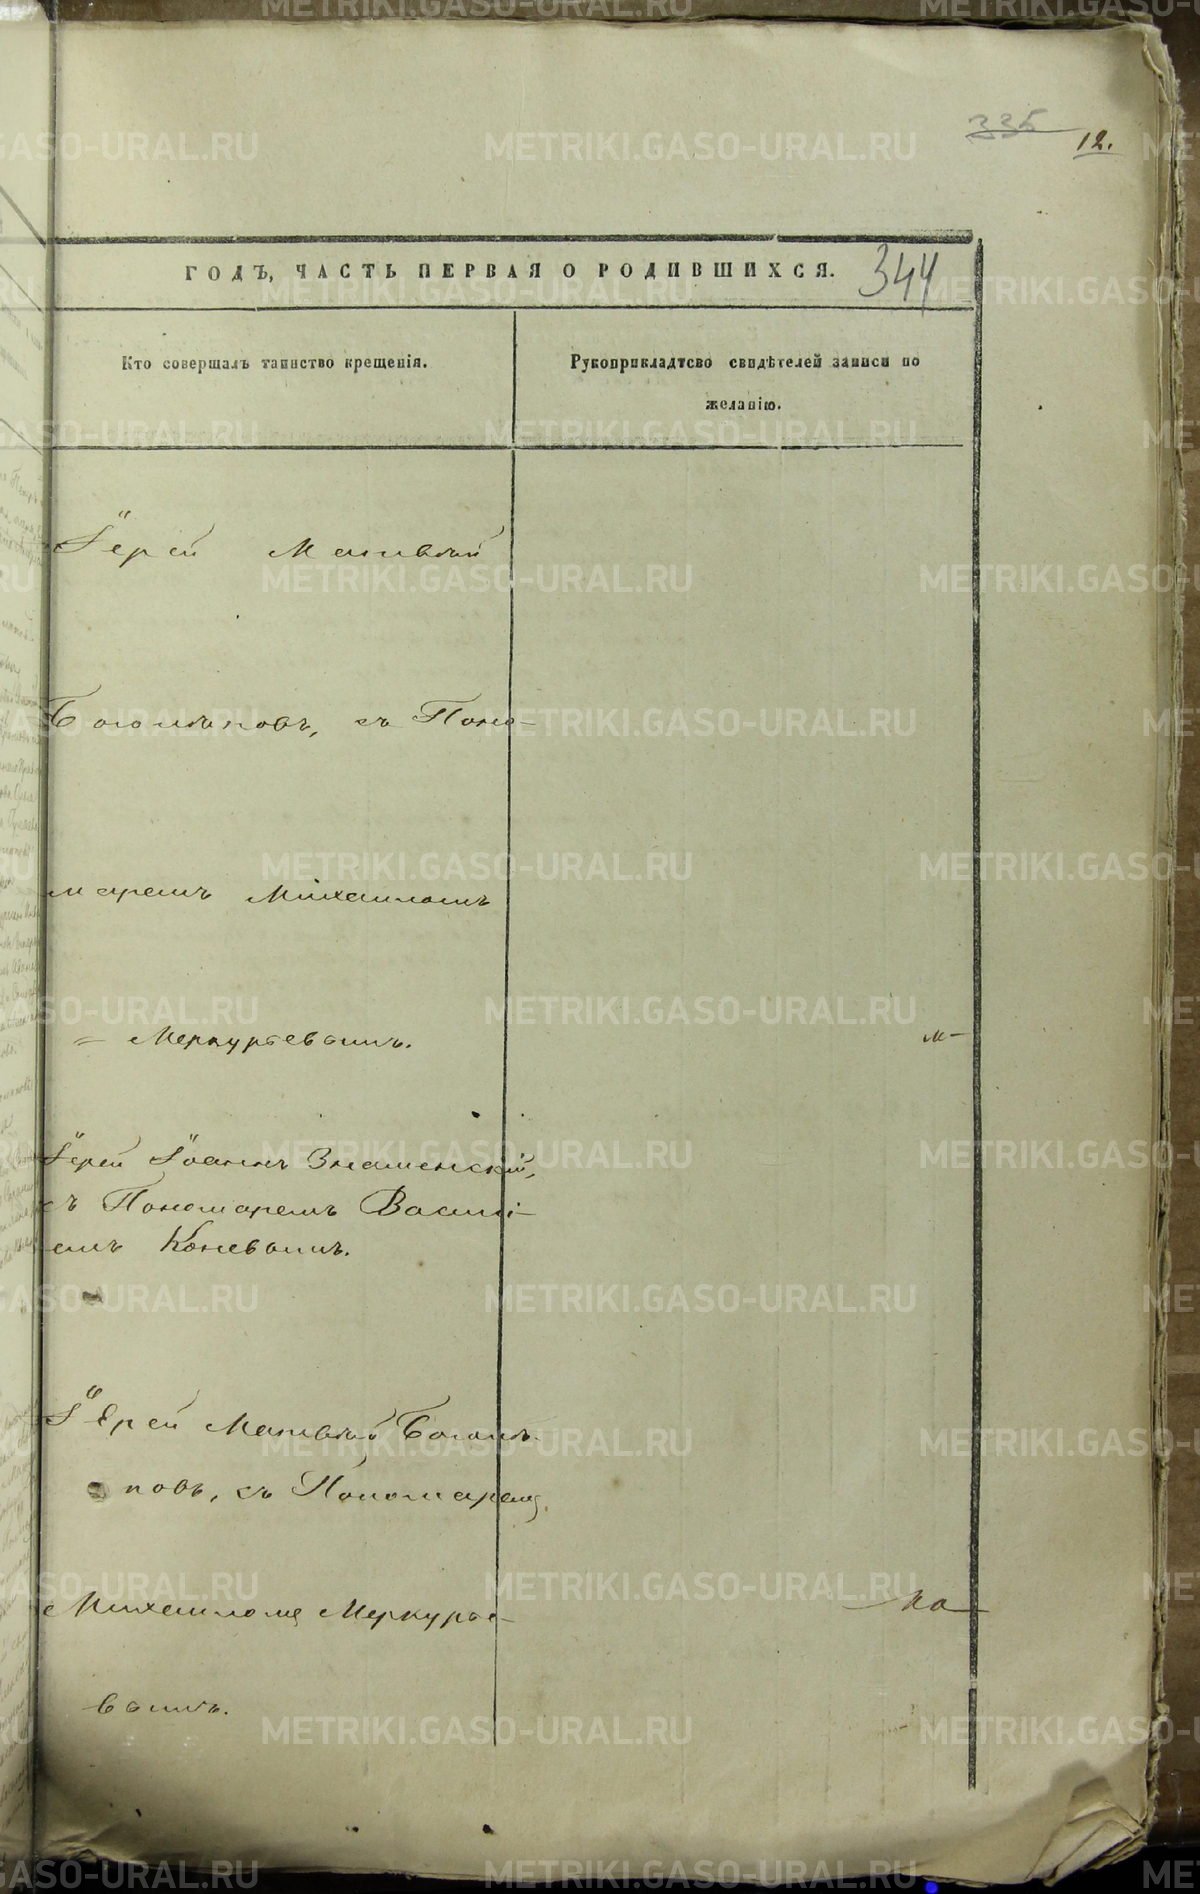 335
12.
ГОДЪ, ЧАСТЬ ПЕРВАЯ О РОДИВШИХСЯ. 344
Кто совершалъ таинство крещенія.
Рукоприкладтсво свидѣтелей записи по
желанію.
Іерей Матвѣй
Боголѣповъ, съ Поно-
маремъ Михаиломъ
= Меркурьевымъ.
м-
Іерей Іоаннъ Знаменскій,
съ Пономаремъ Васил-
емъ Коневымъ.
Іерей Матвѣй Боголѣ-
повъ, съ Пономаремъ
Михаиломъ Меркурье-
ка
вымъ.
METRIKI.GASO-URAL.RU